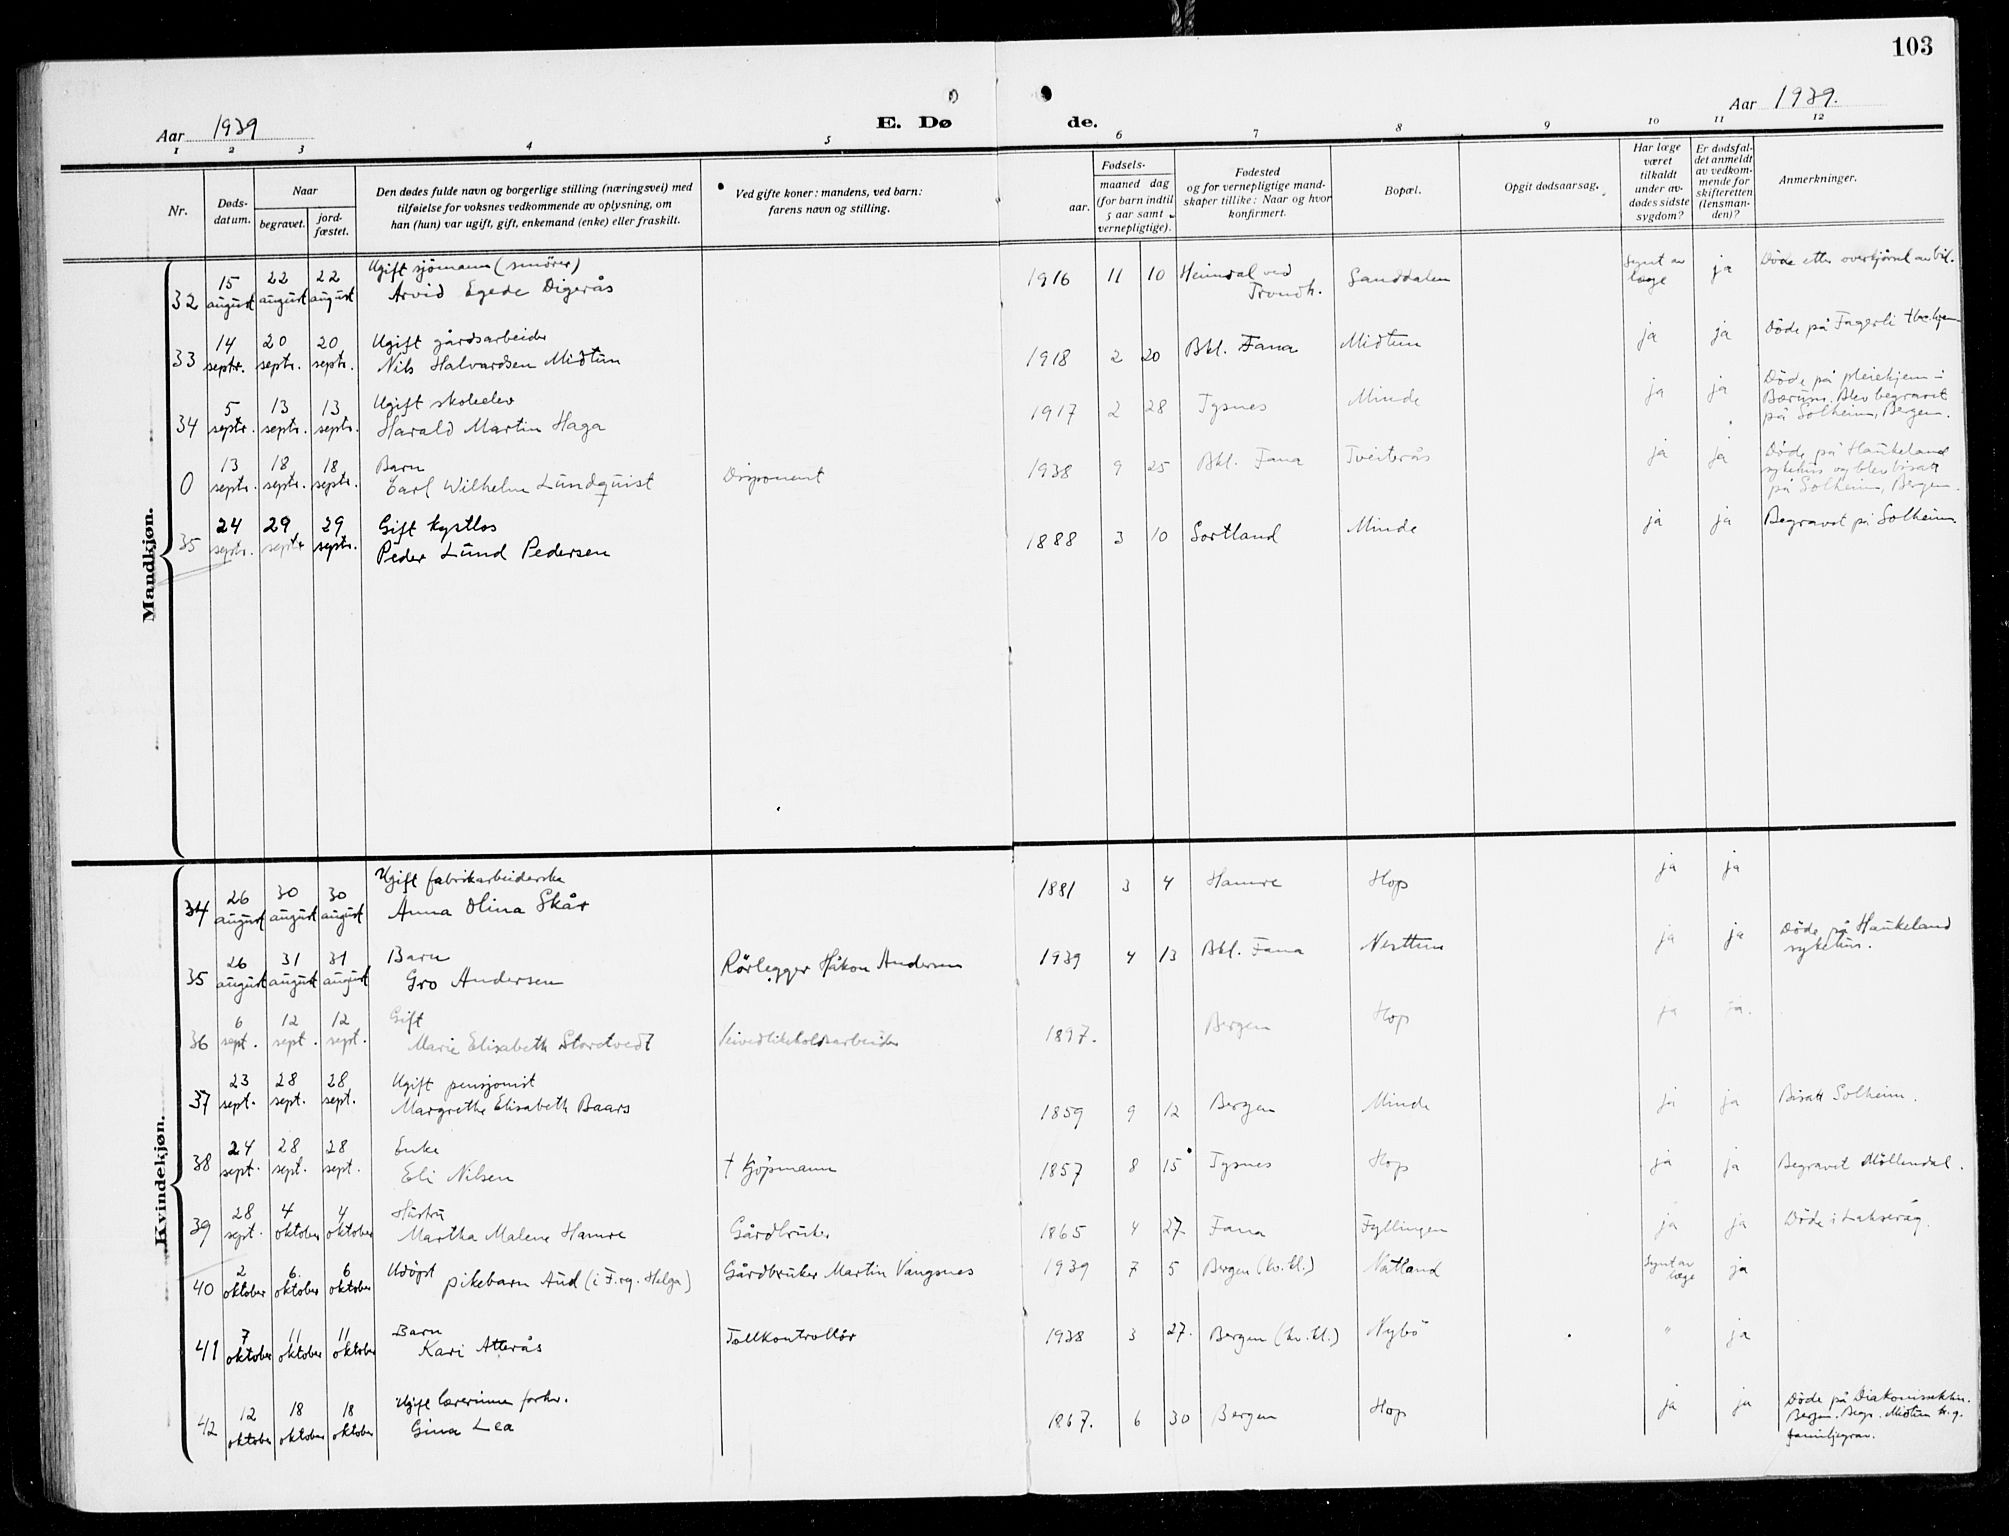 103
Aar 1939
E. Døde.
Aar 1939.
1 2 3 4 5 6 7 8 9 10 11 12
Nr.
Døds-
datum.
Naar
begravet.
jord-
fæstet.
Den dødes fulde navn og borgerlige stilling (næringsvei) med
tilføielse for voksnes vedkommende av oplysning, om
han (hun) var ugift, gift, enkemand (enke) eller fraskilt.
Ved gifte koner: mandens, ved barn:
farens navn og stilling.
Fødsels-
aar.
maaned dag
(for barn indtil
5 aar samt
vernepligtige).
Fødested
og for vernepligtige mand-
skaper tillike: Naar og hvor
konfirmert.
Bopæl.
Opgit dødsaarsag.
Har læge
været
tilkaldt
under av-
dødes sidste
sygdom?
Er dødsfal-
det anmeldt
av vedkom-
mende for
skifteretten
(lensman-
den)?
Anmerkninger.
Mandkjøn.
32 15 august 22 august 22 august Ugift sjömann (smörer)
Arvid Egede Digerås 1916 11 10 Heimdal ved
Trondh. Sanddalen Synt av
læge ja Döde etter overkjörsel av bil.
33 14 septr. 20 septr. 20 septr. Ugift gårdsarbeider
Nils Halvardsen Midtun 1918 2 20 Bkl. Fana Midtun ja ja Döde på Fagerli
34 5 septr. 13 septr. 13 septr. Ugift skoleelev
Harald Martin Haga 1917 2 28 Tysnes Minde ja ja Döde på pleiehjem i
Bærum. Blev begravet
på Solheim, Bergen.
0 13 septr. 18 septr. 18 septr. Barn
Carl Wilhelm Lundquist Disponent 1938 9 25 Bkl. Fana Tveiterås ja ja Döde på Haukeland
sykehus og blev bisatt
på Solheim, Bergen.
35 24 septr. 29 septr 29 septr. Gift kystlos
Peder Lund Pedersen 1888 3 10 Sortland Minde ja ja Begravet på Solheim.
Kvindekjøn.
34 26 august 30 august 30 august Ugift fabrikarbeiderske
Anna Olina Skår 1881 3 4 Hamre Hop ja ja
35 26 august 31 august 31 august Barn
Gro Andersen Rörlegger Håkon Andersen 1939 4 13 Bkl. Fana Nesttun ja ja Döde på Haukeland
sykehus.
36 6 sept. 12 sept. 12 sept. Gift
Marie Elisabeth Storetvedt Veivedlikeholdsarbeider 1897. Bergen Hop ja ja.
37 23 sept. 28 sept. 28 sept. Ugift pensjonist
Margrethe Elisabeth Baars 1859 9 12 Bergen Minde ja ja Bisatt Solheim.
38 24 sept. 28 sept. 28 sept. Enke
Eli Nilsen † Kjöpmann 1857 8 15 Tysnes Hop ja ja Begravet Möllendal.
39 28 sept. 4 oktober 4 oktober Hustru
Martha Malene Hamre Gårdbruker 1865 4 27 Fana Fyllingen ja ja Döde i Laksevåg.
40 2 oktober 6 oktober 6 oktober Udöpt pikebarn Aud (i F.reg. Helga) Gårdbruker Martin Vangsnes 1939 7 5 Bergen (kv.kl.) Natland Synt av
læge ja
41 7 oktober 11 oktober 11 oktober Barn
Kari Atterås Tollkontrollör 1938 3 27. Bergen (kv.kl.) Nybö " ja
42 12 oktober 18 oktober 18 oktober Ugift lærerinne forhv.
Gina Lea 1867. 6 30 Bergen Hop ja ja Döde på
Bergen. Begr. Midtun
familjegrav.